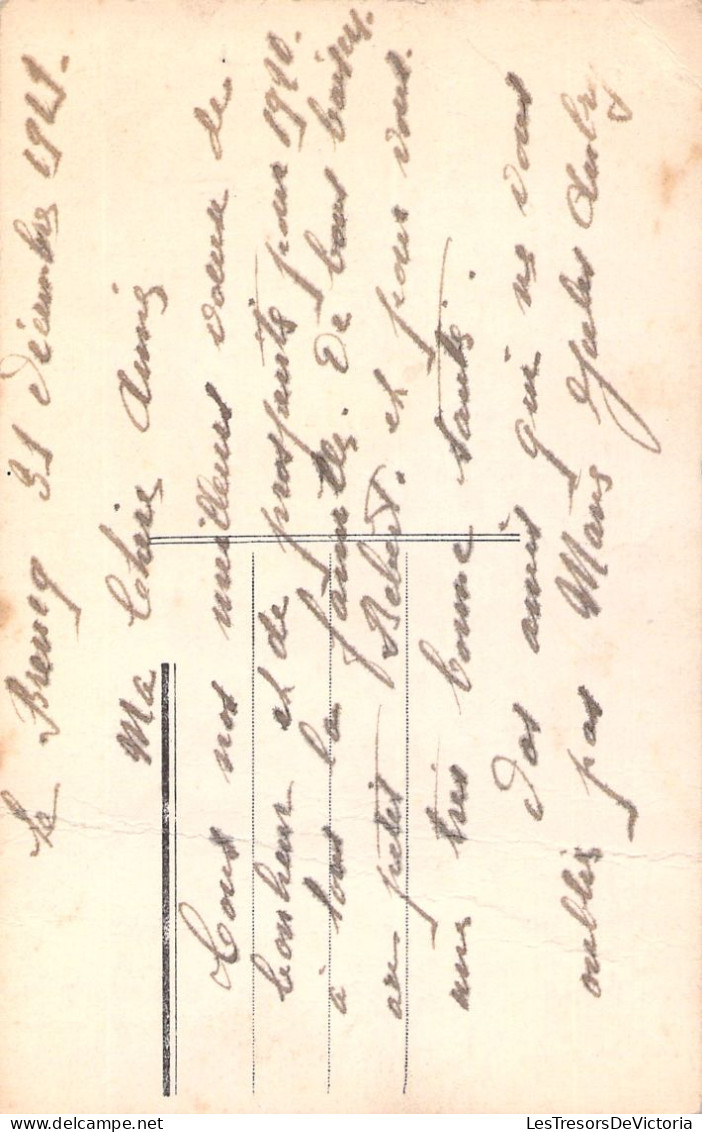 Le 31 décembre 19
Ma Chère Amie
Tous nos meilleurs vœux de
bonheur et de prospérité pour 19
à tous la famille. De bons baisers
au petit Robert. et pour vous.
une très bonne santé.
Vos amis qui ne vous
oublie pas Jules
LesTresorsDeVictoria